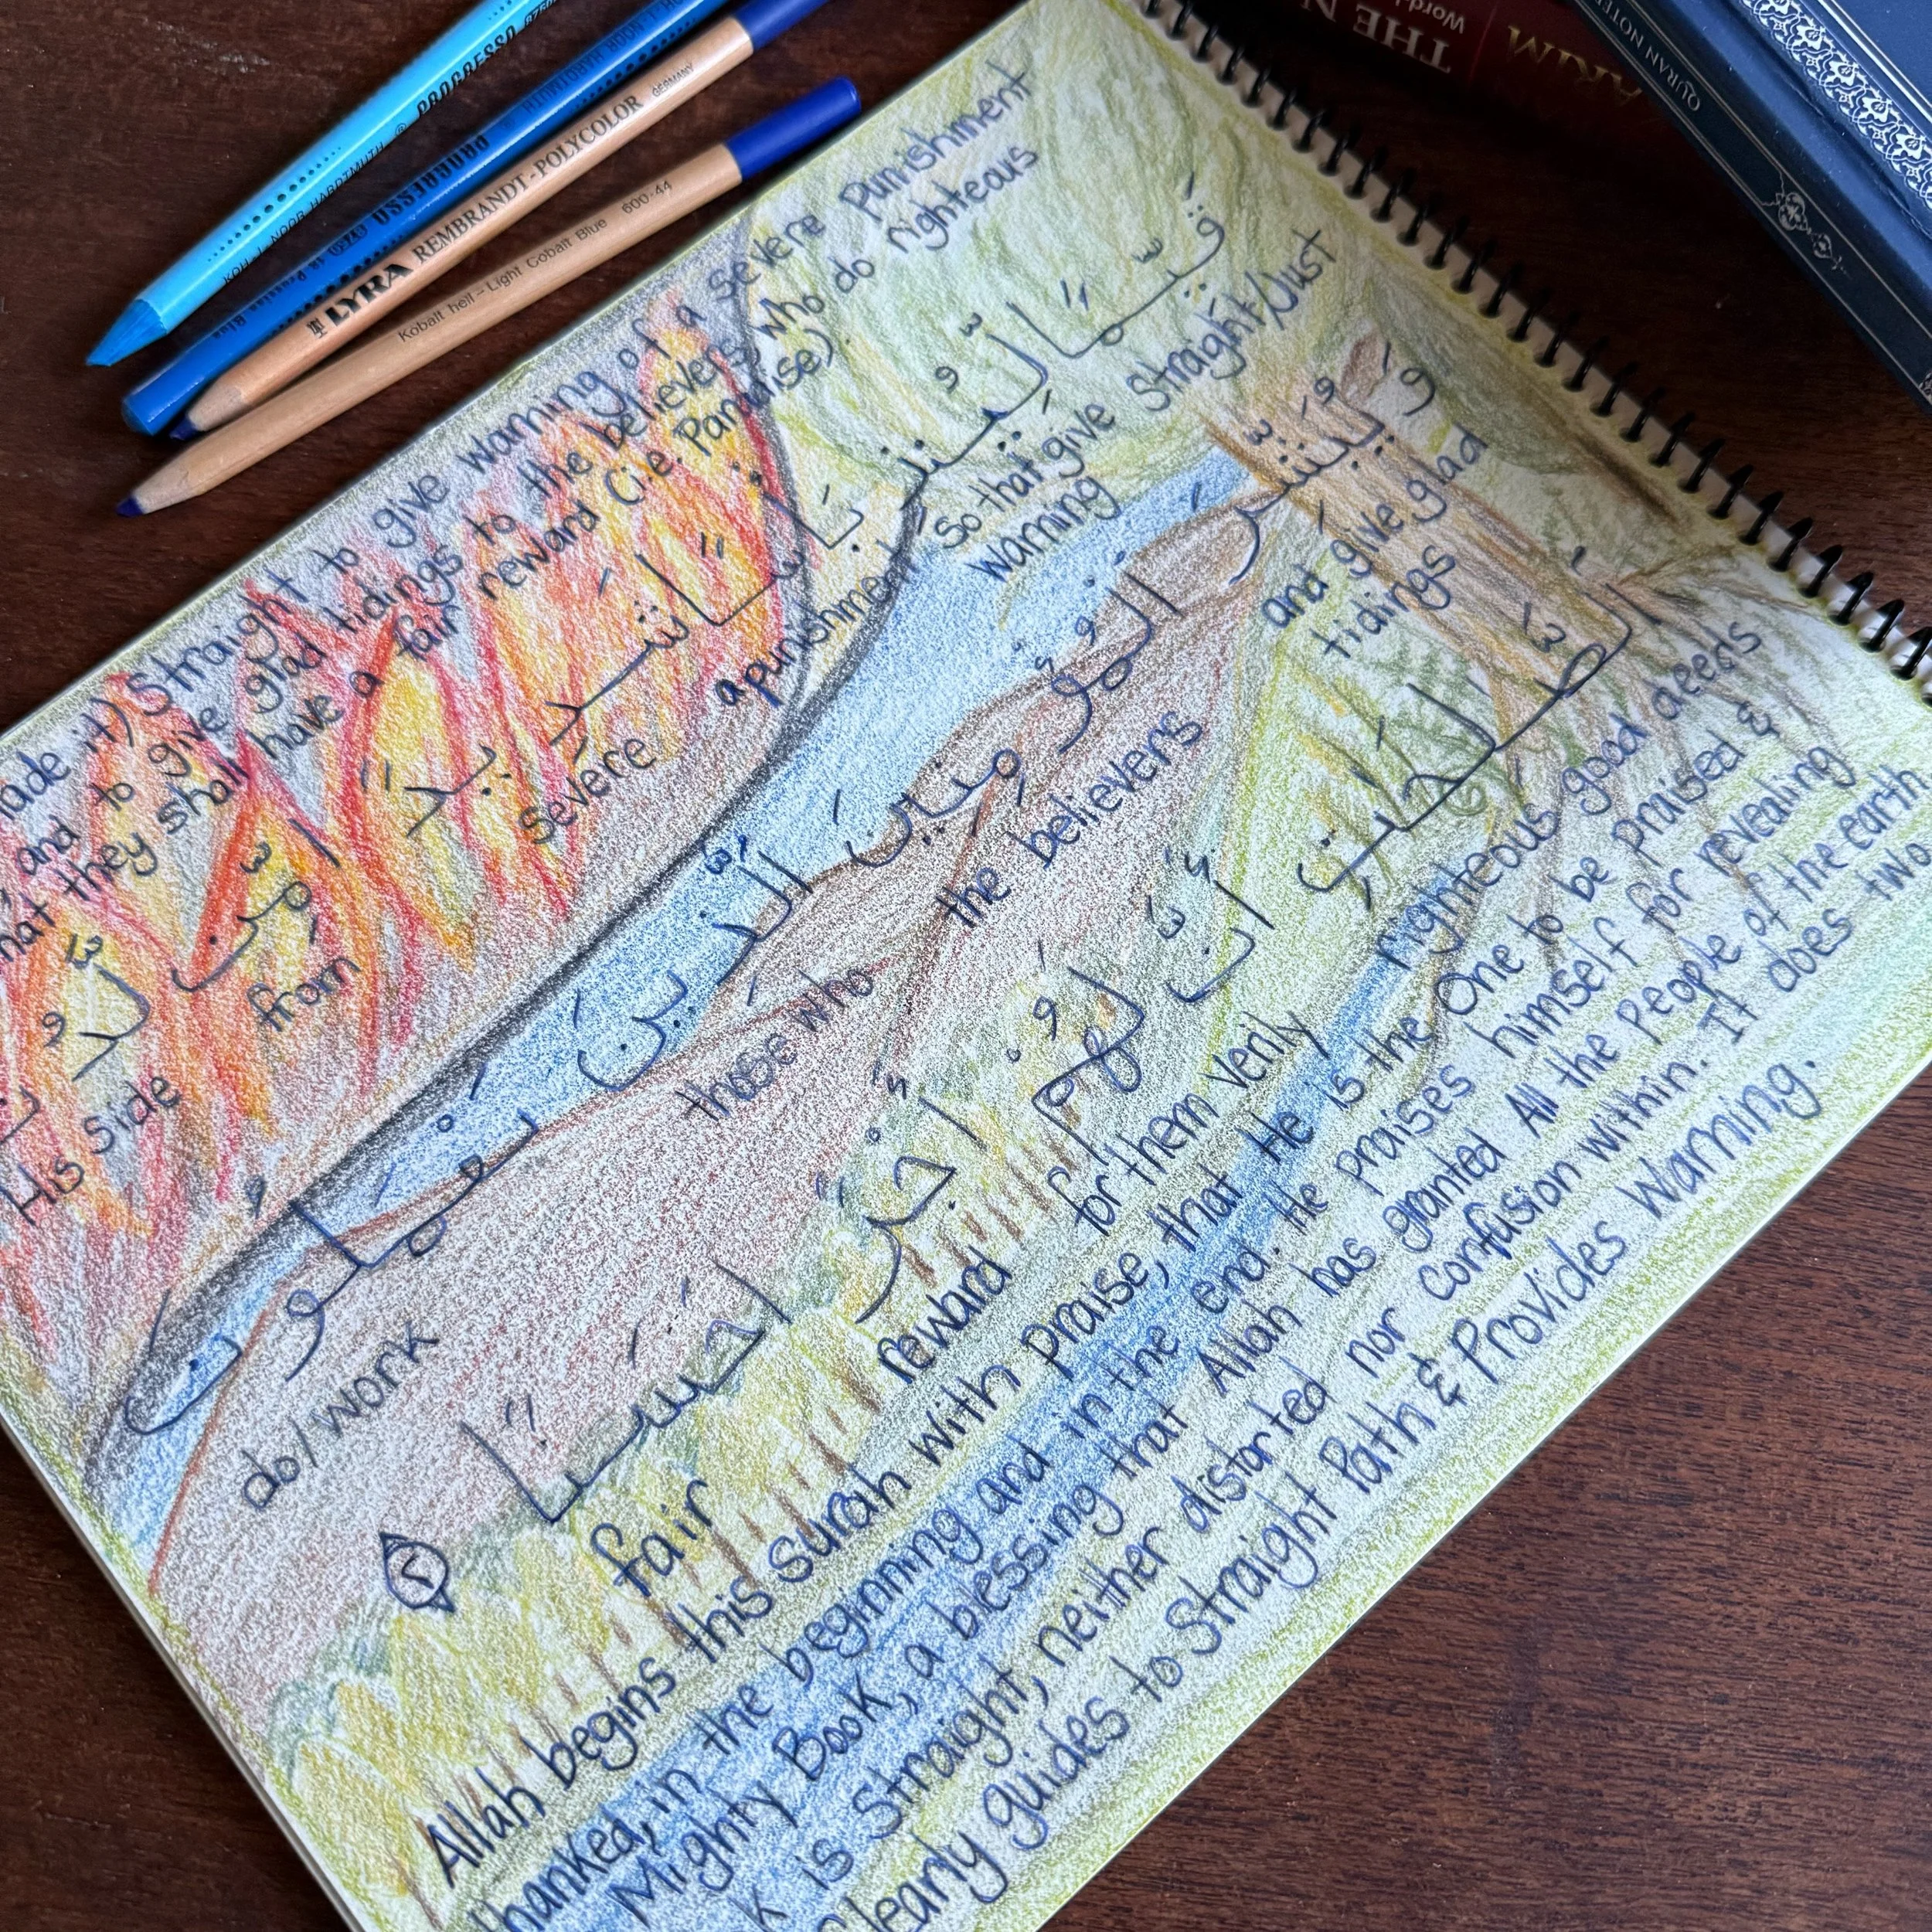 KOH-I-NOOR HARDTMUTH ® PROGRESSO 875
KOH-I-NOOR HARDTMUTH PROGRESSO
LYRA REMBRANDT-POLYCOLOR GERMANY
Kobalt hell – Light Cobalt Blue 600-44
THE N
Word
QURAN NOTE
ade it) Straight to give warning of a severe Punishment
and to give glad tidings to the believers, who do righteous
hat they shall have a fair reward (i.e. Paradise).
قَيِّمًا لِّيُنذِرَ بَأْسًا شَدِيدًا مِّن لَّدُ
Straight/Just
So that give warning
a punishment
severe
from
His side
وَيُبَشِّرَ الْمُؤْمِنِينَ الَّذِينَ يَعْمَلُونَ
and give glad tidings
the believers
those who
do/work
الصَّلِحَتِ أَنَّ لَهُمْ أَجْرًا حَسَنًا
righteous good deeds
verily
for them
reward
fair
٢
Allah begins this surah with praise, that He is the One to be praised &
thanked, in the beginning and in the end. He praises himself for revealing
Mighty Book, a blessing that Allah has granted All the People of the earth
k is Straight, neither distorted nor confusion within. It does two
Clearly guides to Straight Path & Provides Warning.